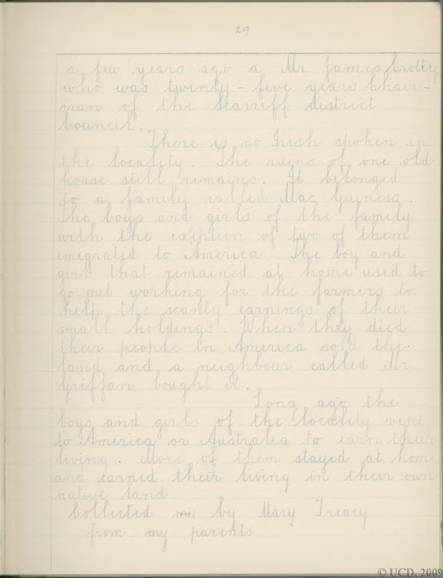 29
a few years ago a Mr James Brotty
who was twenty-five years chair-
man of the Scarriff district
Council.
There is no Irish spoken in
the locality. The ruins of one old
house still remains. It belonged
to a family called Mac Guiness.
The boys and girls of the family
with the exception of two of them
emigrated to America. The boy and
girl that remained at home used to
go out working for the farmers to
help the scanty earnings of their
small holdings. When they died
their people in America sold the
land and a neighbour called Mr
Griffan bought it.
Long ago the
boys and girls of the locality went
to America or Australia to earn their
living. More of them stayed at home
and earned their living in their own
native land
Collected by Mary Treacy
from my parents
© UCD, 2009